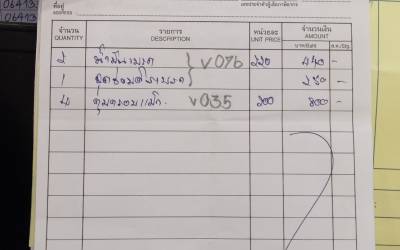 06413
ที่อยู่
ADDRESS
เลขประจำตัวผู้เสียภาษีอากร
จำนวน รายการ หน่วยละ จำนวนเงิน
QUANTITY DESCRIPTION UNIT PRICE AMOUNT
บาท/Baht ส.ต./Stg.
2 น้ำมันเบรค V076 220 440 -
1 ชุดซ่อม 250 -
4 V035 200 800 -